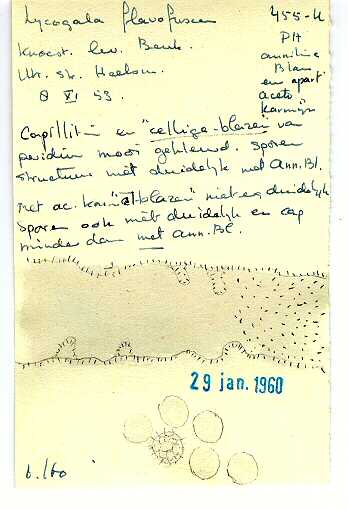 Lycogala flavofuscum
455-U
PA
Knoest. lev. Beuk.
aniline
Blau
Utr. st. Heelsum.
en apart
aceto
8 XI 53.
karmijn
Capillitium en "cellige-blazen" van
peridium mooi gekleurd. Sporen
structuur niet duidelijk met Ann. Bl.
Met ac. kar. "blazen" niet erg duidelijk
Sporen ook niet duidelijk en cap
minder dan met Ann. Bl.
29 jan. 1960
6./60